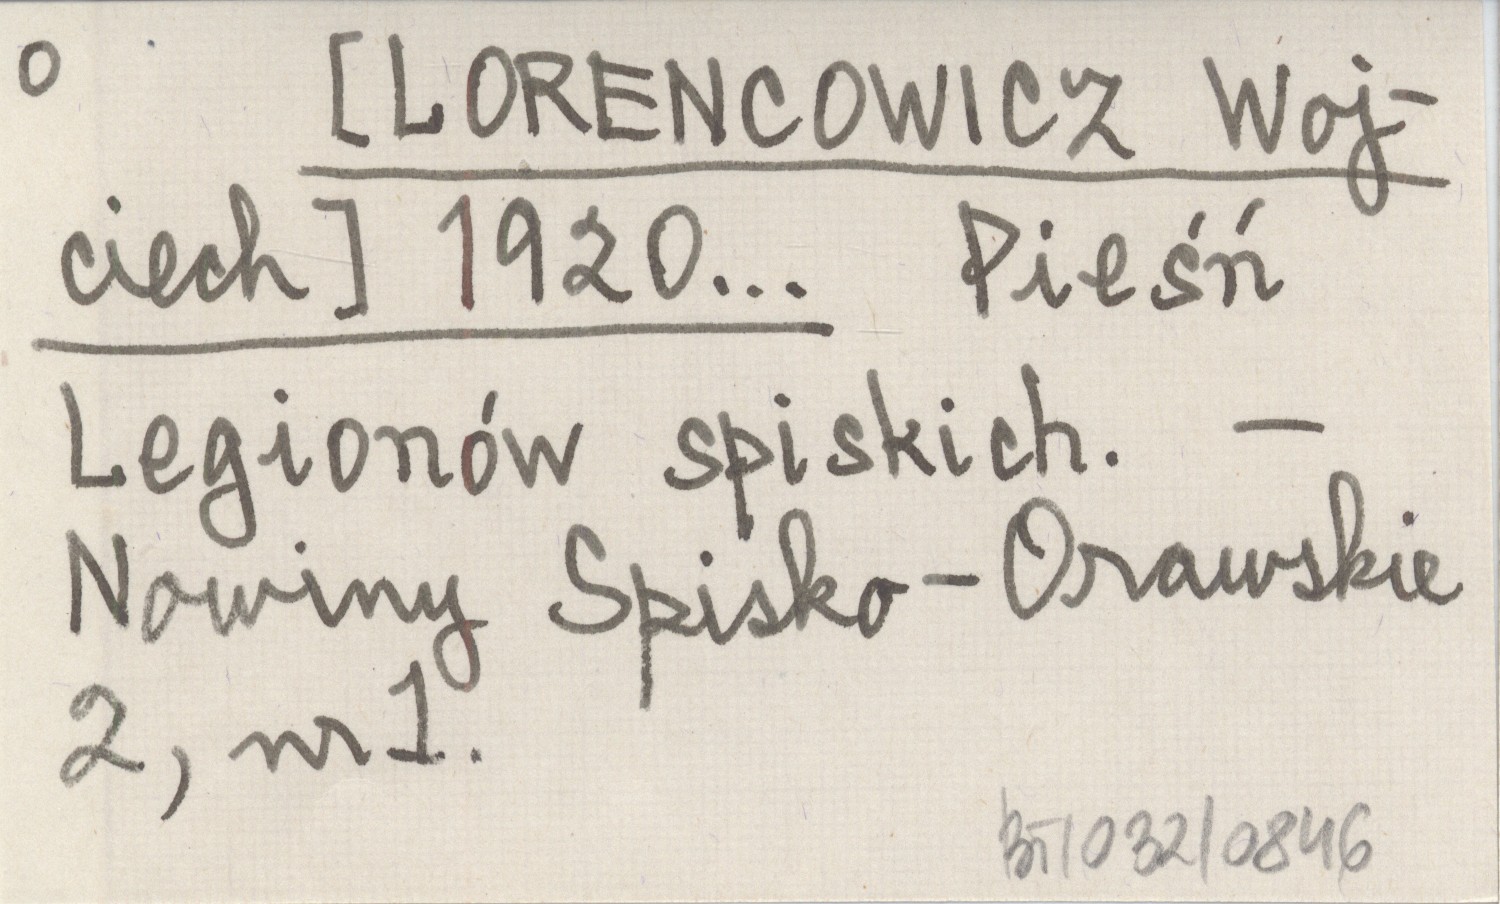 o [LORENCOWICZ Woj-
ciech] 1920... Pieśń
Legionów spiskich. —
Nowiny Spisko-Orawskie
2, nr 1.
BT/032/0846